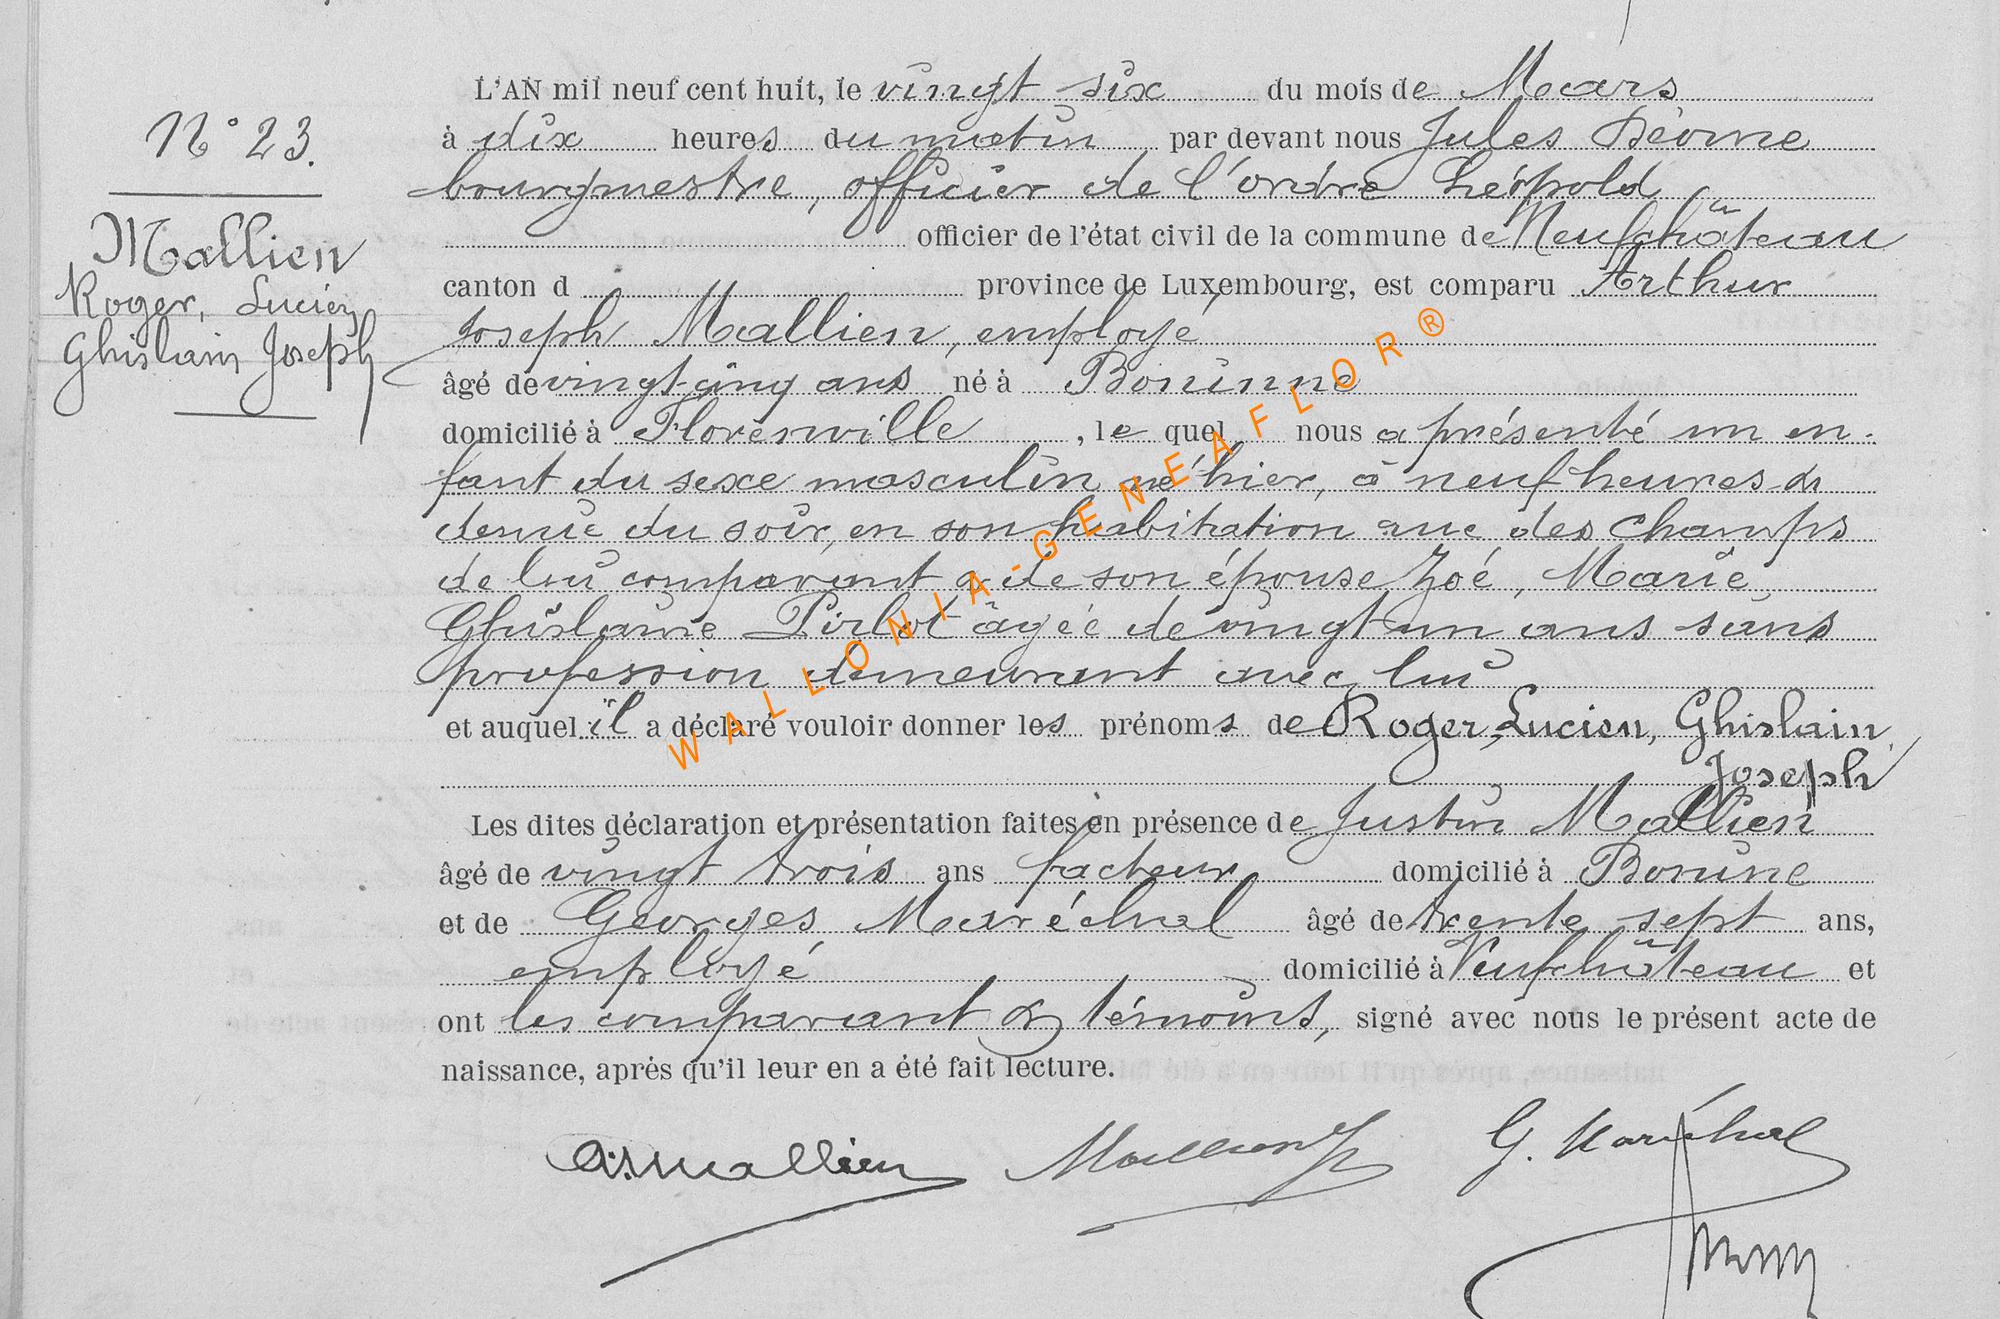 N° 23.
Mallien
Roger, Lucien
Ghislain Joseph
L'AN mil neuf cent huit, le vingt six du mois de Mars
à dix heures du matin par devant nous Jules Déome
bourgmestre, officier de l'ordre Léopold
officier de l'état civil de la commune de Neufchâteau
canton d province de Luxembourg, est comparu Arthur
Joseph Mallien, employé
âgé de vingt-cinq ans né à Boninne
domicilié à Florenville , le quel nous a présenté un en-
fant du sexe masculin né hier, à neuf heures &
demie du soir, en son habitation rue des Champs
de lui comparant & de son épouse Zoé, Marie
Ghislaine Pirlot âgée de vingt un ans sans
profession demeurant avec lui
et auquel il a déclaré vouloir donner les prénoms de Roger, Lucien, Ghislain
Joseph
Les dites déclaration et présentation faites en présence de Justin Mallien
âgé de vingt trois ans facteur domicilié à Bonine
et de Georges Maréchal âgé de trente sept ans,
employé domicilié à Neufchâteau et
ont les comparant & témoins, signé avec nous le présent acte de
naissance, après qu'il leur en a été fait lecture.
A. Mallien Mallien J G. Maréchal
WALLONIA-GENEAFLOR®